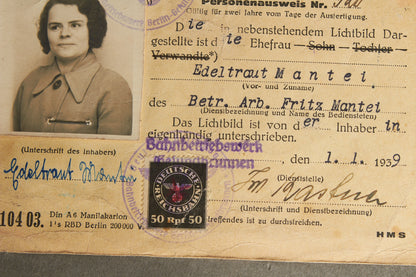 Personenausweis Nr.
Gültig für zwei Jahre vom Tage der Ausfertigung.
Die in nebenstehendem Lichtbild Dar-
gestellte ist die Ehefrau — Sohn — Tochter —
Verwandte*)
Edeltraut Mantei.
(Vor- und Zuname)
des Betr. Arb. Fritz Mantei
(Dienstbezeichnung und Name des Bediensteten)
Das Lichtbild ist von der Inhaber in
eigenhändig unterschrieben.
(Unterschrift des Inhabers)
Edeltraut Mantei
Bahnbetriebswerk
, den 1. 1. 1939
(Dienststelle)
(Unterschrift und Dienstbezeichnung)
DEUTSCHE
REICHSBAHN
50 Rpf 50
treffendes ist zu durchstreichen.
104 03. Din A6 Manilakarton
RBD Berlin 200000
HMS